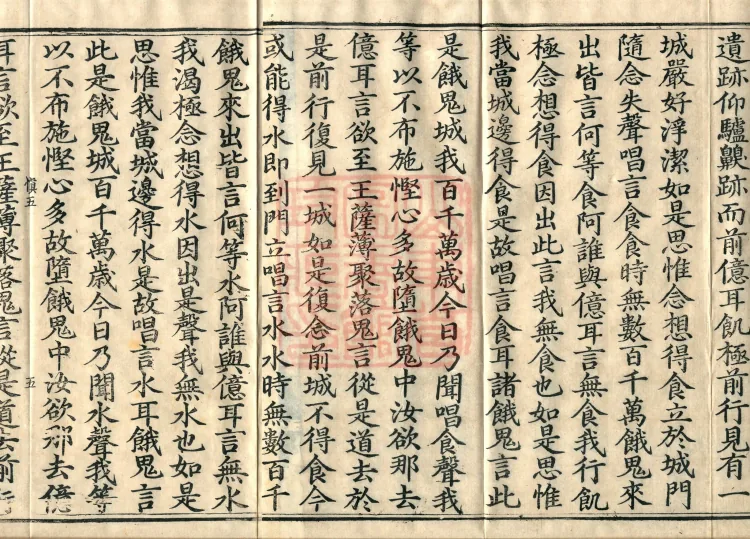 遺跡仰驢鼽跡而前億耳飢極前行見有一
城嚴好淨潔如是思惟念想得食立於城門
隨念失聲唱言食食時無數百千萬餓鬼來
出皆言何等食阿誰與億耳言無食我行飢
極念想得食因出此言我無食也如是思惟
我當城邊得食是故唱言食耳諸餓鬼言此
是餓鬼城我百千萬歲今日乃聞唱食聲我
等以不布施慳心多故墮餓鬼中汝欲那去
億耳言欲至王薩薄聚落鬼言從是道去於
是前行復見一城如是復念前城不得食今
或能得水即到門立唱言水水時無數百千
餓鬼來出皆言何等水阿誰與億耳言無水
我渴極念想得水因出是聲我無水也如是
思惟我當城邊得水是故唱言水耳餓鬼言
此是餓鬼城百千萬歲今日乃聞水聲我等
以不布施慳心多故墮餓鬼中汝欲那去億
慎五 五
耳言欲至王薩薄聚落鬼言從是道去前行